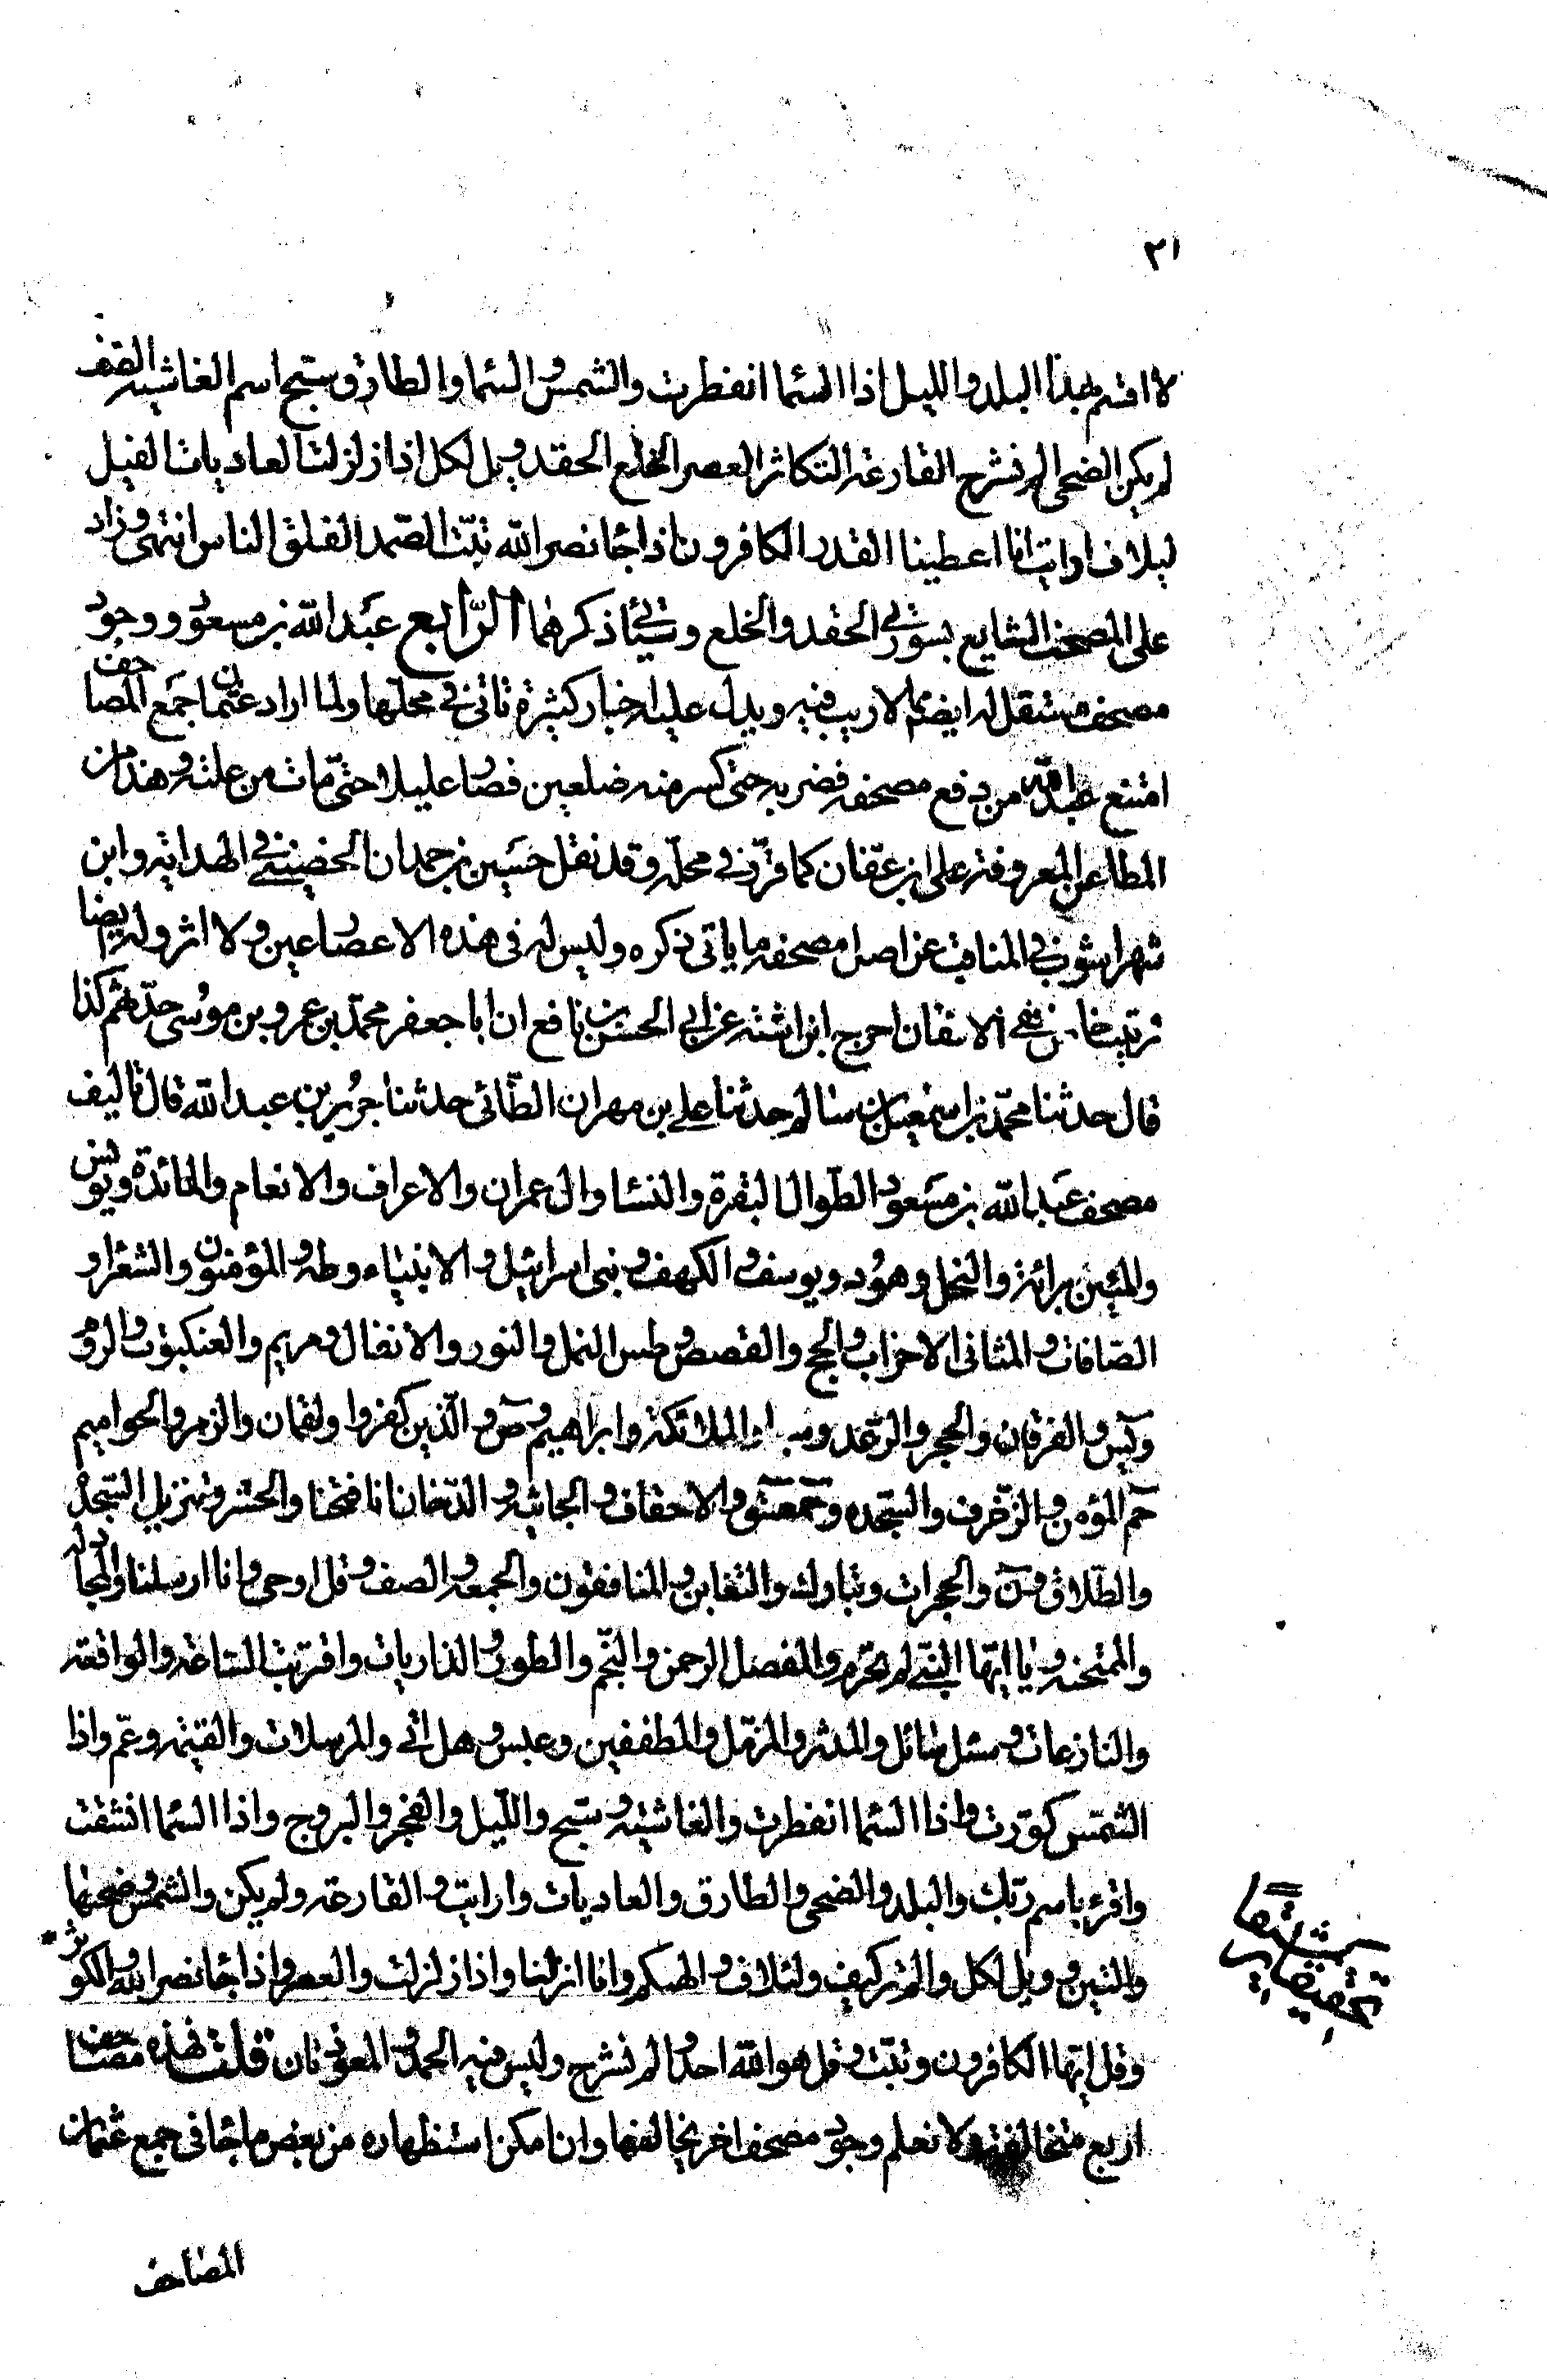 ٢١
لا اقسم بهذا البلد والليل اذا السما انفطرت والشمس والسما والطارق وسبح اسم الغاشيه الصف
لم يكن الضحى الم نشرح القارعة التكاثر العصر الخلع الحفد ويل لكل اذا زلزلت العاديات الفيل
ليلاف ارايت انا اعطينا القدر الكافرون اذا جاء نصر الله تبت الصمد الفلق الناس انتهى وزاد
على المصحف الشايع بسورتى الحفد والخلع وسيأتى ذكرهما الرّابع عبد الله بن مسعود ووجود
مصحف مستقل له ايضا مما لاريب فيه ويدل عليه اخبار كثيرة تاتى فى محلها ولما اراد عثمان جمع المصاحف
امتنع عبد الله من دفع مصحفه فضربه حتى كسر منه ضلعين فصار عليلا حتى مات من علته وهذا من
المطاعن المعروفة على ابن عفان كما قرّر فى محله وقد نقل حسين بن حمدان الحضينى فى الهداية وابن
شهراشوب فى المناقب عن اصل مصحفه ما ياتى ذكره وليس له فى هذه الاعصار عين ولا اثر وله ايضا
ترتيب خاص ففى الاتقان اخرج ابن اشته عن ابى الحسن بن نافع ان ابا جعفر محمد بن عمرو بن موسى حدّثهم كذا
قال حدثنا محمد بن اسمعيل بن سالم حدثنا على بن مهران الطّائى حدثنا جرير بن عبد الله قال تاليف
مصحف عبد الله بن مسعود الطوال البقرة والنسا وال عمران والاعراف والانعام والمائدة ويونس
والمئين برائة والنحل وهود ويوسف والكهف وبنى اسرائيل والانبياء وطه والمؤمنون والشعراء و
الصّافات والمثانى الاحزاب والحج والقصص وطس النمل والنور والانفال ومريم والعنكبوت والروم
ويس والفرقان والحجر والرّعد وسبا والملائكة وابراهيم وص والّذين كفروا ولقمان والزمر والحواميم
حم المؤمن والزّخرف والسّجده وحمعسق والاحقاف والجاثيه والدّخان انا فتحنا والحشر وتنزيل السّجدة
والطّلاق ون والحجرات وتبارك والتغابن والمنافقون والجمعه والصف وقل اوحى وانا ارسلنا والمجادله
والممتحنه ويا ايّها النّبى لم تحرم والمفصل الرحمن والنّجم والطور والذاريات واقتربت الساعة والواقعه
والنازعات وسئل سائل والمدثر والمزّمل والمطففين وعبس وهل اتى والمرسلات والقيمة وعمّ واذا
الشمس كوّرت واذا السّما انفطرت والغاشيه وسبح واللّيل والفجر والبروج واذا السّما انشقت
واقرء باسم ربّك والبلد والضحى والطارق والعاديات وارايت والقارعة ولم يكن والشمس وضحيها
والتين وويل لكل والم تر كيف ولئلاف والهيكم وانا انزلنا واذا زلزلت والعصر واذا جاء نصر الله والكوثر
وقل ايّها الكافرون وتبّت وقل هو الله احد والم نشرح وليس فيه الحمد والمعوذتان قلت فهذه مصاحف
اربع متخالفة ولا نعلم وجود مصحف اخر يخالفها وان امكن استظهاره من بعض ما جاء فى جمع عثمان
المصاحف